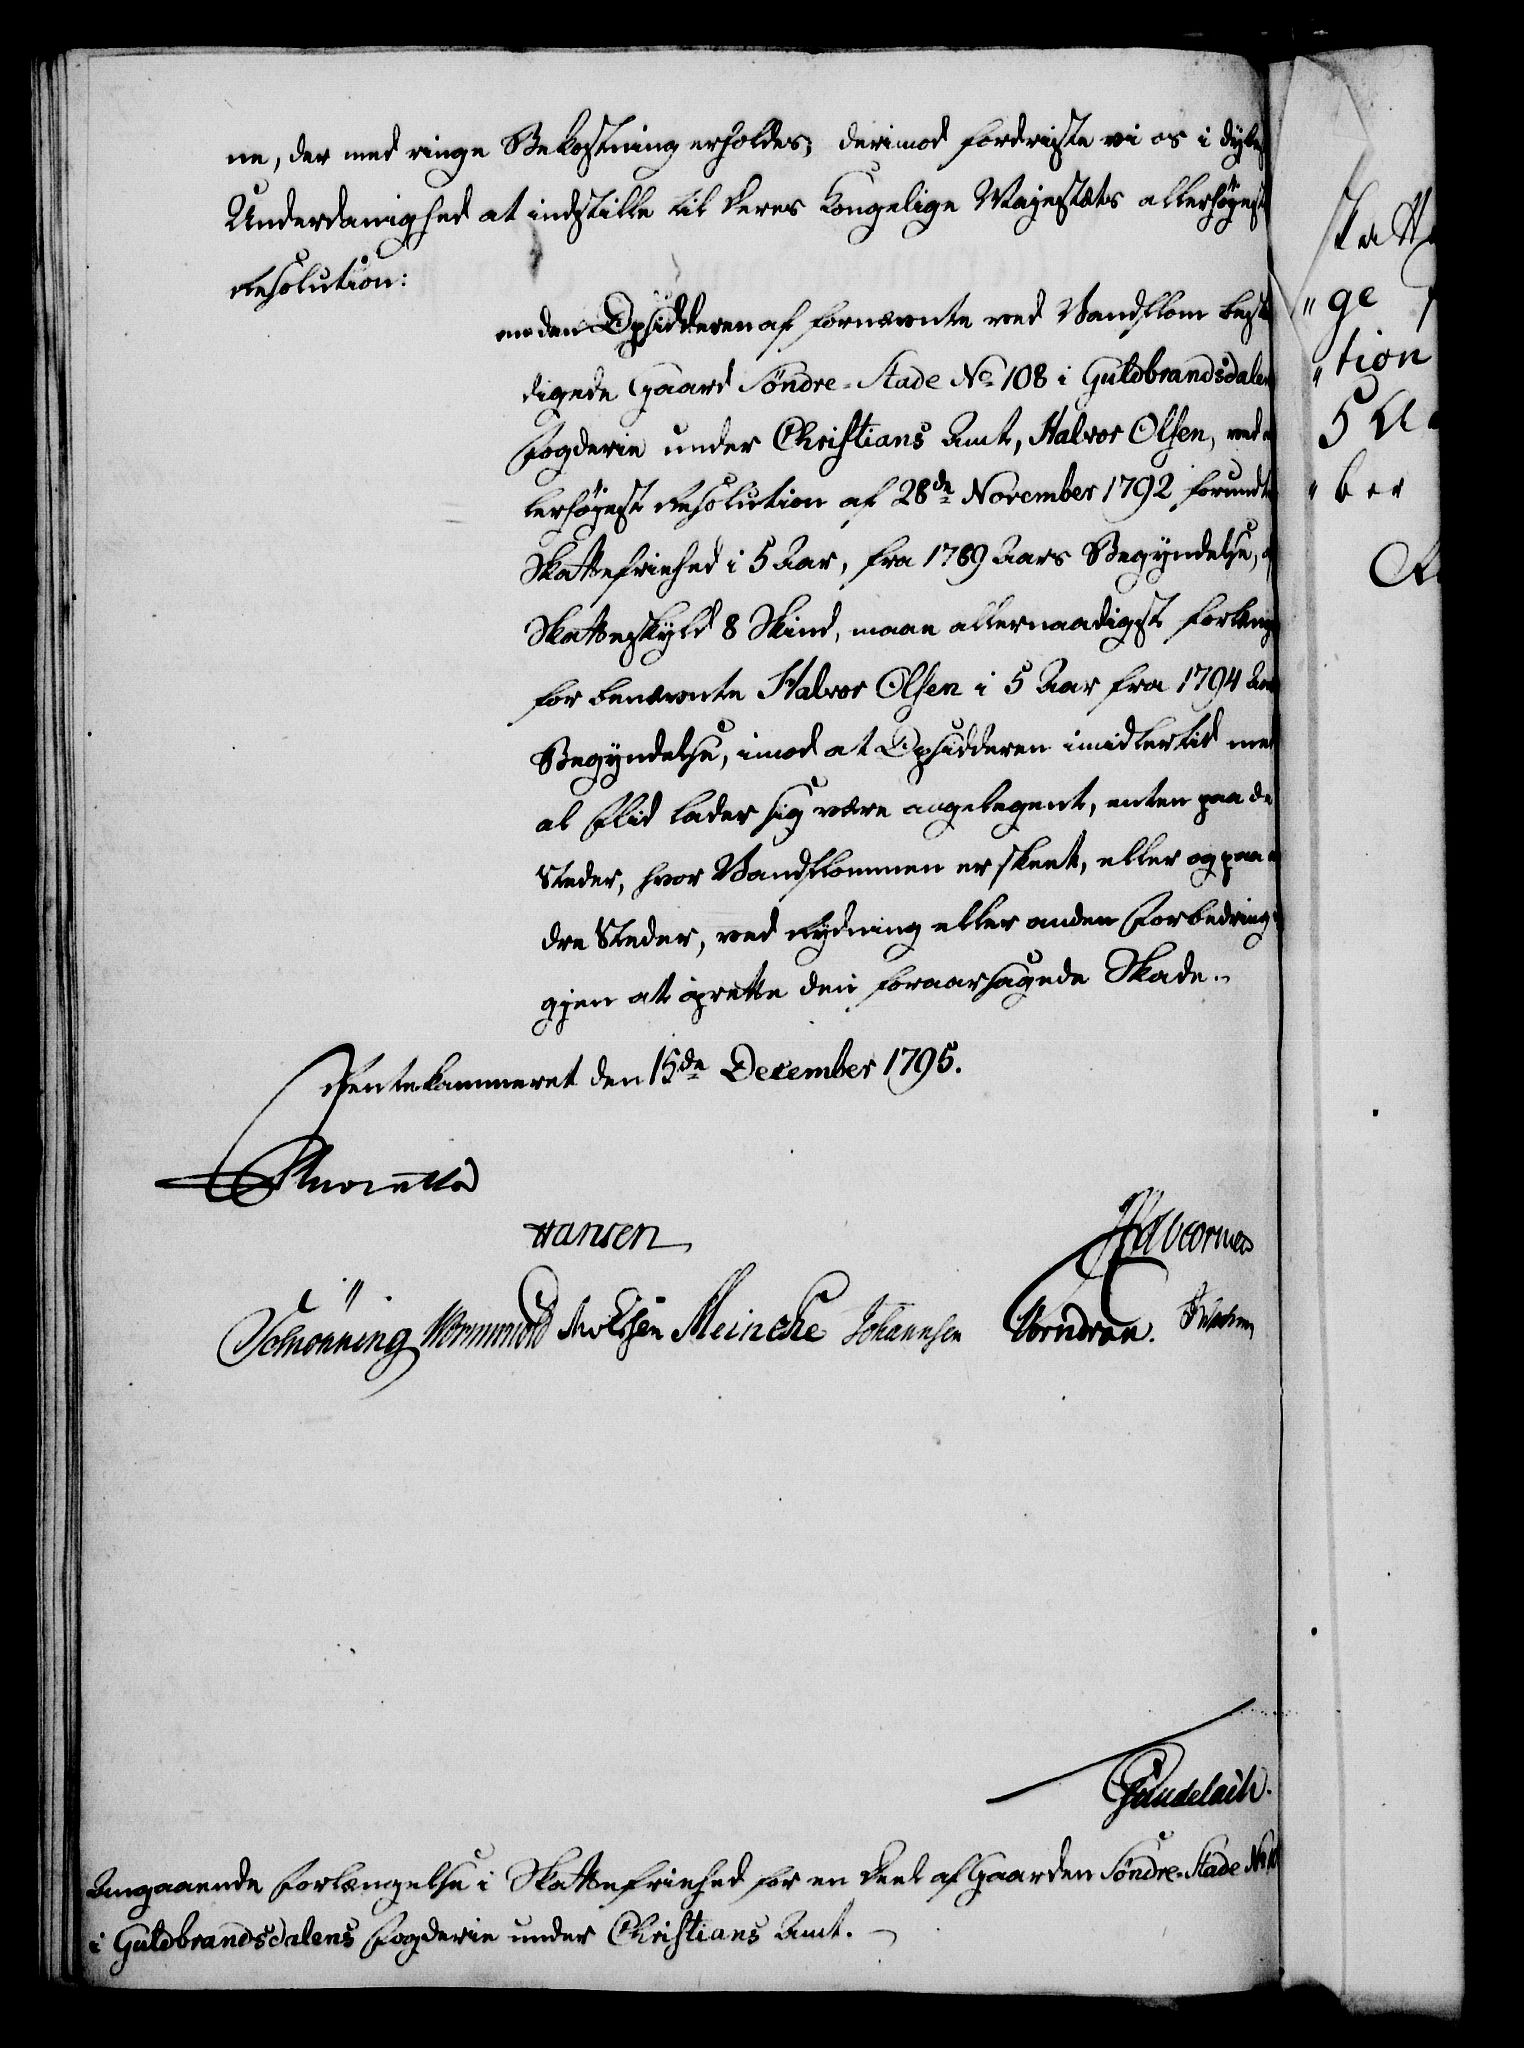 ne, der med ringe Bekostning erholdes; derimod fordriste vi os i dybes
Underdanighed at indstille til Deres Kongelige Majestæts allerhøyest
Resolution:
om den Opsidderen af fornævnte ved Vandflom beska
digede Gaard Söndre-Stade No 108 i Guldbrandsdalen
Fogderie under Christians Amt, Halvor Olsen, ved a
lerhøyest Resolution af 28de November 1792 forundte
Skattefriehed i 5 Aar, fra 1789 Aars Begyndelse, a
Skatteskyld 8 Skind, maae allernaadigst forlæng
for benævnte Halvor Olsen i 5 Aar fra 1794 Aar
Begyndelse, imod at Opsidderen imidlertid med
al Flid lader sig være angelegent, enten paa de
Steder, hvor Vandflommen er skeet, eller og paa a
dre Steder, ved Rydning eller anden Forbedring
gjen at oprette den foraarsagede Skade.
Rentekammeret den 15de December 1795.
Hansen
Schönning Wormskiold Meincke Johannsen
Gundelach.
Angaaende Forlængelse i Skattefriehed for en Deel af Gaarden Söndre-Stade No 10
i Guldbrandsdalens Fogderie under Christians Amt.
Skatte
"ge
"tion
5 Aa
"ber